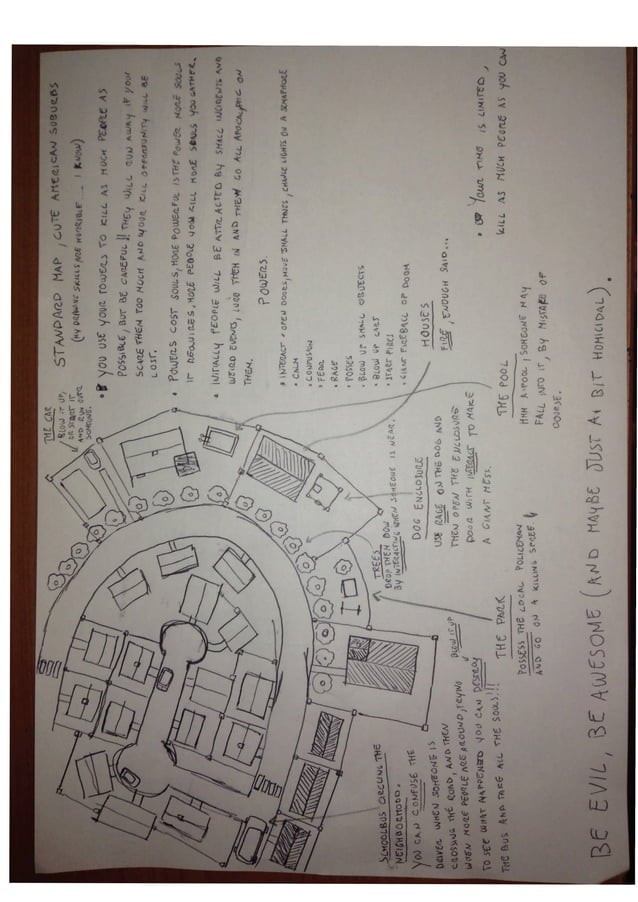 STANDARD MAP, CUTE AMERICAN SUBURBS
(MY DRAWING SKILLS ARE HORRIBLE... I KNOW)
• YOU USE YOUR POWERS TO KILL AS MUCH PEOPLE AS
POSSIBLE, BUT BE CAREFUL!! THEY WILL RUN AWAY IF YOU
SCARE THEM TOO MUCH AND YOUR KILL OPPORTUNITY WILL BE
LOST.
• POWERS COST SOULS, MORE POWERFUL IS THE POWER MORE SOULS
IT REQUIRES, MORE PEOPLE YOU KILL MORE SOULS YOU GATHER.
• INITIALLY PEOPLE WILL BE ATTRACTED BY SMALL INCIDENTS AND
WEIRD EVENTS, LURE THEM IN AND THEN GO ALL APOCALYPTIC ON
THEM.
POWERS.
• INTERACT, OPEN DOORS, MOVE SMALL THINGS, CHANGE LIGHTS ON A SEMAPHORE
• CALM
• CONFUSION
• FEAR
• RAGE
• POSSES
• BLOW UP SMALL OBJECTS
• BLOW UP CARS
• START FIRES
• GIANT FIREBALL OF DOOM
• YOUR TIME IS LIMITED,
KILL AS MUCH PEOPLE AS YOU CAN
THE CAR
BLOW IT UP,
OR START IT
AND RUN OVER
SOMEONE.
HOUSES
FIRE, ENOUGH SAID...
TREES
DROP THEM DOW
BY INTERACTING WHEN SOMEONE IS NEAR.
DOG ENCLOSURE
USE RAGE ON THE DOG AND
THEN OPEN THE ENCLOSURE
DOOR WITH INTERACT TO MAKE
A GIANT MESS.
THE POOL
HMM A POOL! SOMEONE MAY
FALL INTO IT, BY MISTAKE OF
COURSE.
THE PARK
POSSESS THE LOCAL POLICEMAN
AND GO ON A KILLING SPREE!
SCHOOLBUS CIRCLING THE
NEIGHBORHOOD.
YOU CAN CONFUSE THE
DRIVER WHEN SOMEONE IS
CROSSING THE ROAD, AND THEN
WHEN MORE PEOPLE ARE AROUND, TRYING
BLOW IT UP
TO SEE WHAT HAPPENED YOU CAN DESTROY
THE BUS AND TAKE ALL THE SOULS!!!
BE EVIL, BE AWESOME (AND MAYBE JUST A BIT HOMICIDAL).